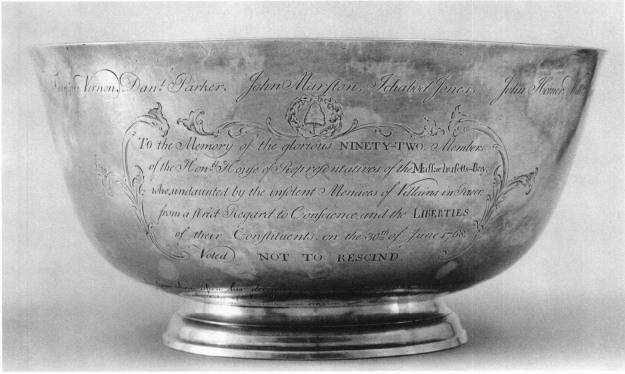 Vernon, Danl. Parker, John Marston, Ichabod Jones, John Homer,
To the Memory of the glorious NINETY-TWO: Members
of the Honbl. House of Representatives of the Massachusetts-Bay,
who, undaunted by the insolent Menaces of Villains in Power,
from a strict Regard to Conscience, and the LIBERTIES
of their Constituents, on the 30th. of June 1768,
Voted NOT TO RESCIND.